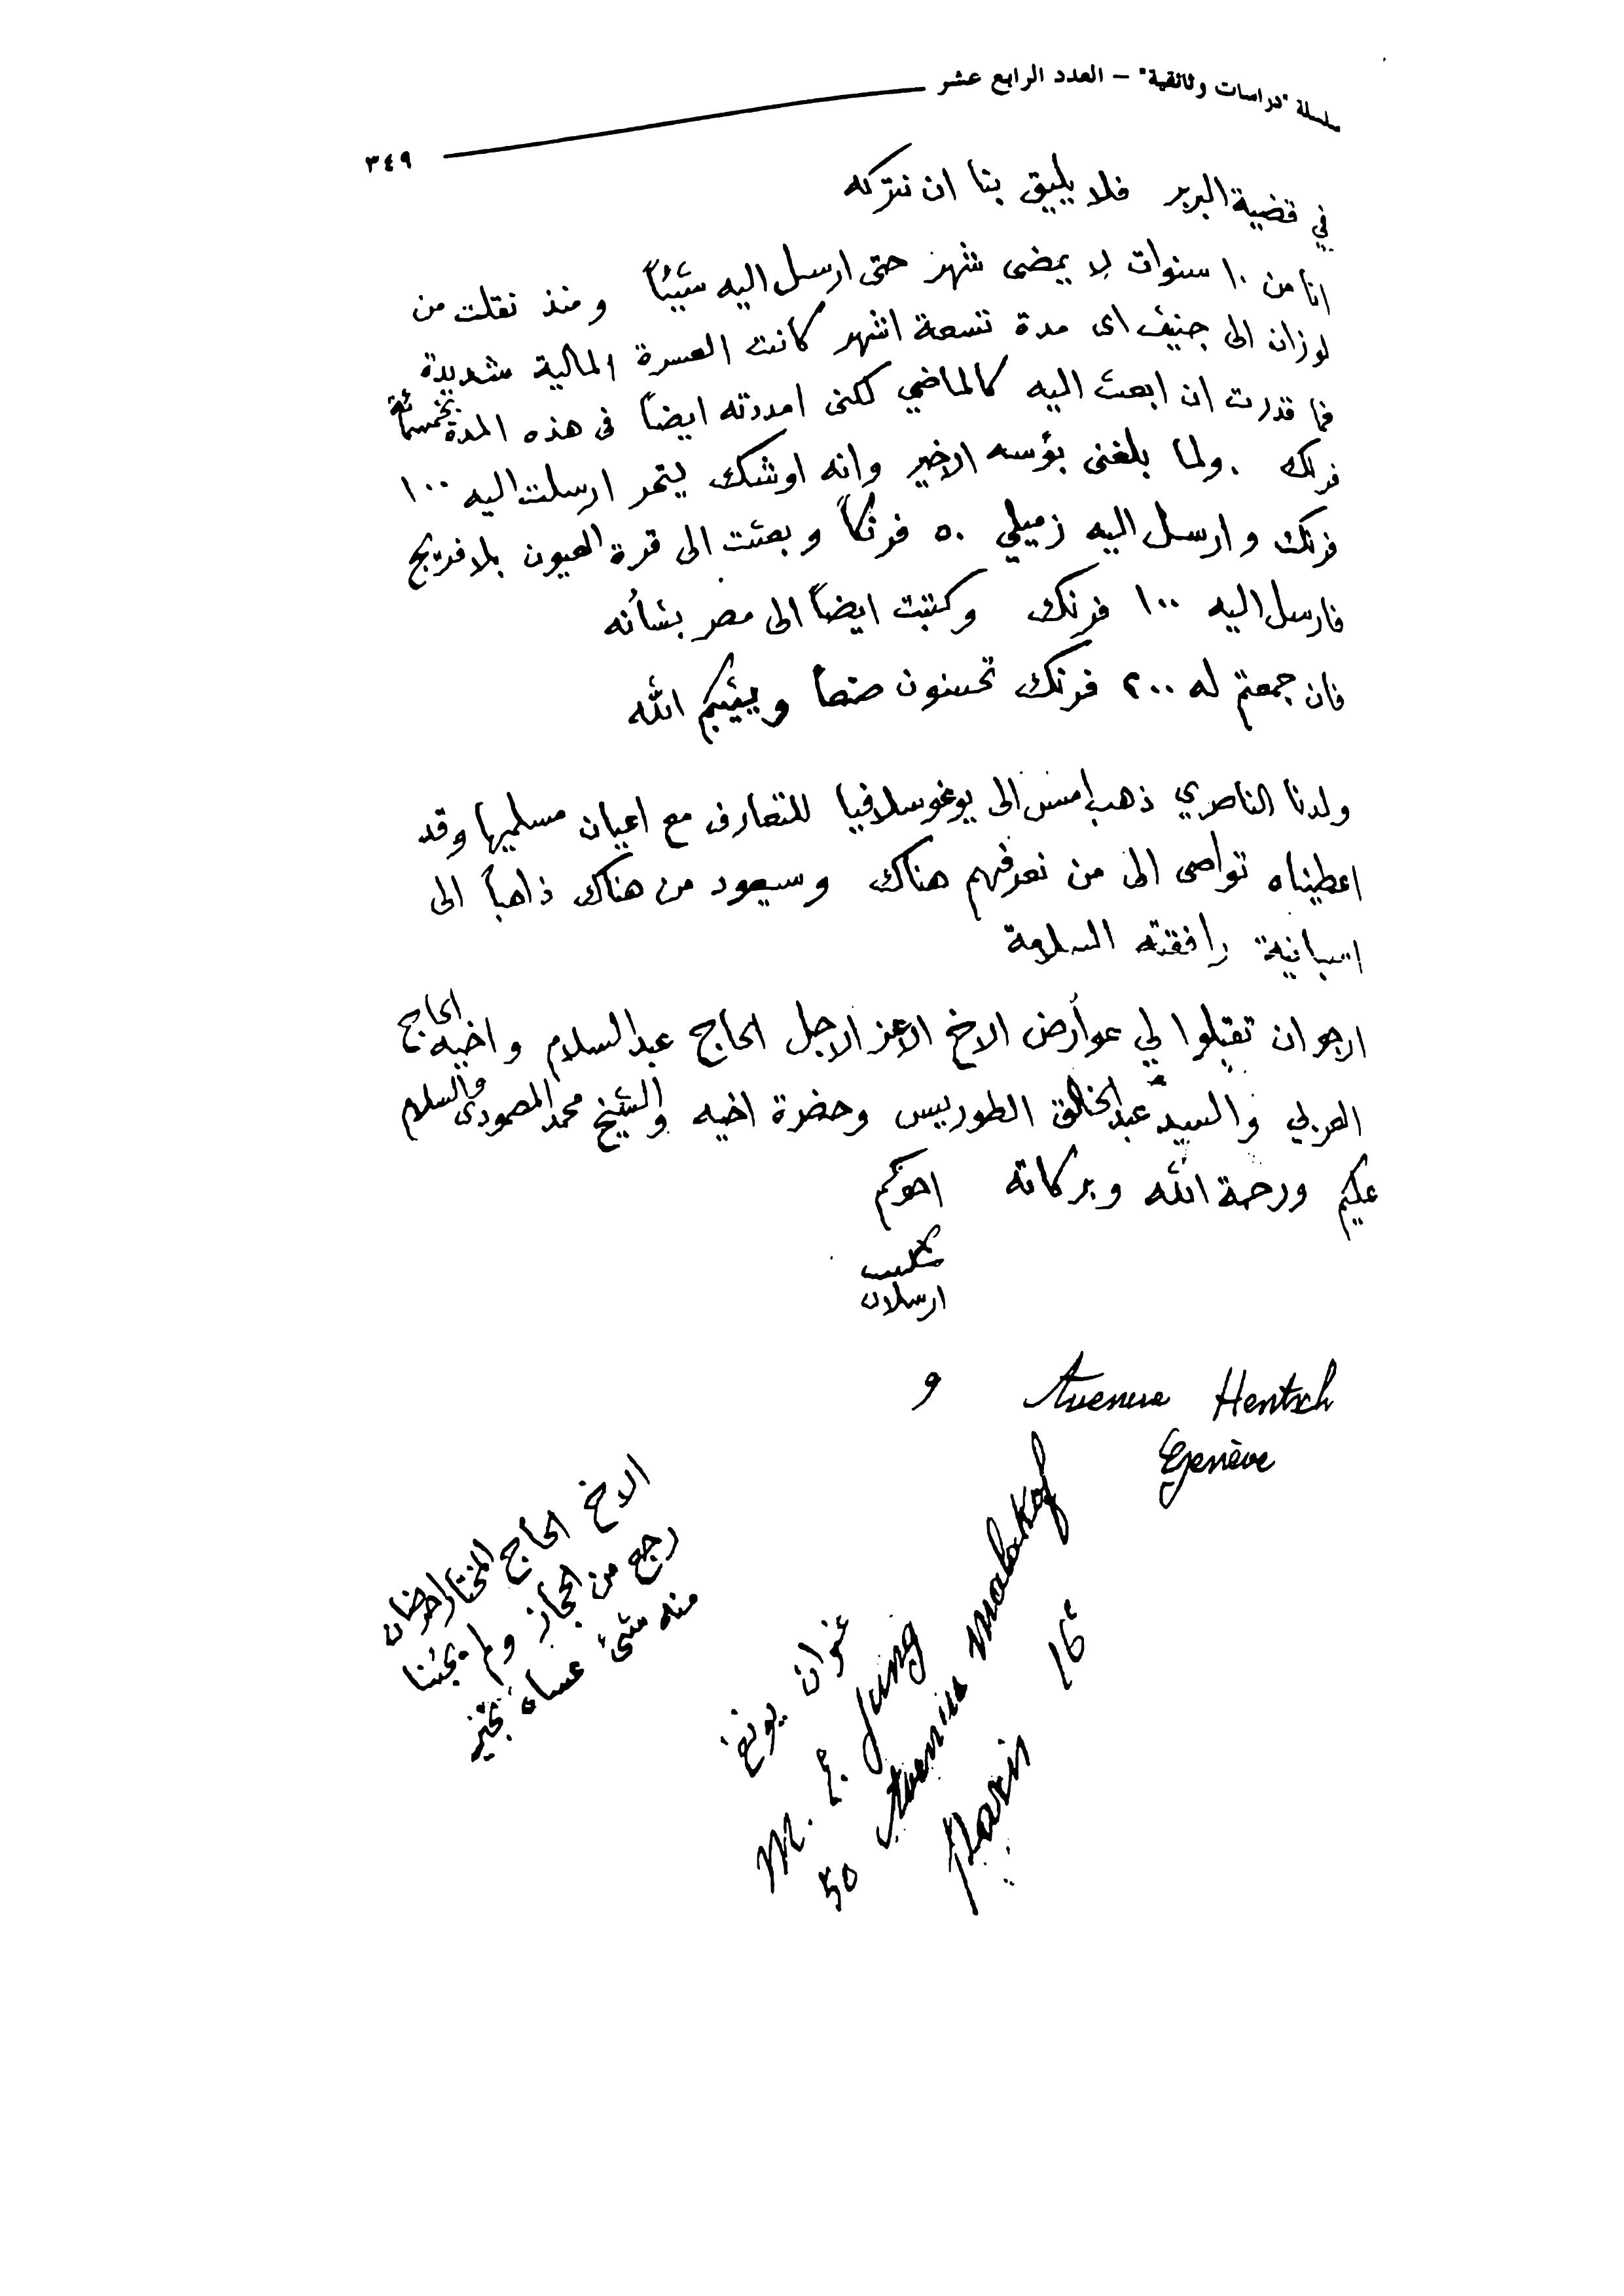 سلسلة "دراسات وثائقية" – العدد الرابع عشر
٣٤٩
في قضية البربر فلا يليق بنا ان نتركه
انا من ١٠ سنوات لا يمضى شهر حتى ارسل اليه شيئاً ومنذ نقلت من
لوزان الى جنيف اى مدة تسعة اشهر كانت العسرة المالية شديدة
فما قدرت ان ابعث اليه كالماضي لكنى امددته ايضاً فى هذه المدة بخمسمائة
فرنك . ولما بلغنى بؤسه الاخير وانه اوشك ارسلت اليه ١٠٠
فرنك وارسل اليه زميلي ٥٠ فرنكاً وبعثت الى قرة العيون بلافريج
فارسل اليه ١٠٠ فرنك وكتبت ايضاً الى مصر بشأنه
فان جمعتم له ٢٠٠ فرنك تحسنون صنعاً ويثيبكم الله
ولدنا الناصري ذهب امس الى يوغوسلافيا للتعارف مع اعيان مسلميها وقد
اعطيناه تواصى الى من نعرفهم هناك وسيعود من هناك ذاهباً الى
اسبانية رافقته السلامة
ارجو ان تقبلوا لي عوارض الاخ الاعز الاجل الحاج عبد السلام واخيه الحاج
العربي والسيد عبد الخالق الطوريس وحضرة اخيه والشيخ محمد المصمودى والسلام
عليكم ورحمة الله وبركاته اخوكم
شكيب
ارسلان
و Avenue Hentsch
Genève
الاخ الحاج المختار احرضان
رجع من الحجاز ولم يجئنا
منه شئ عساه بخير
عنوان يونغ
M. E. Jung
50 Avenue Malakof
Paris 16e